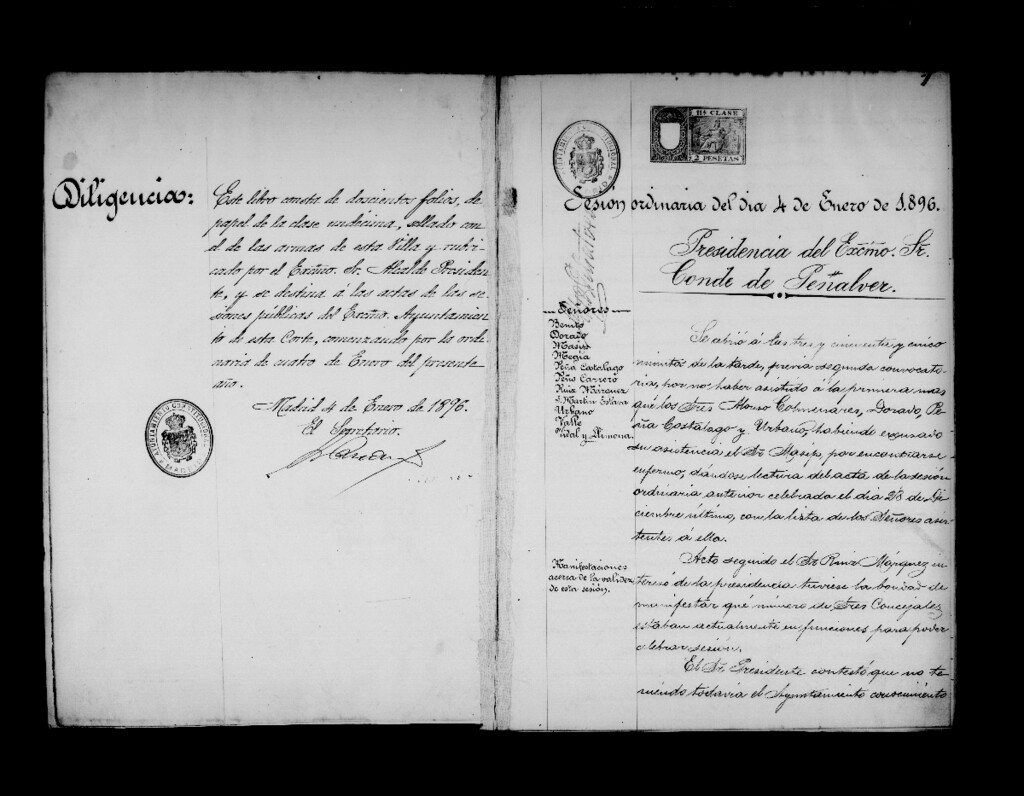 Diligencia:
Este libro consta de doscientos folios, de
papel de la clase undécima, sellado con
el de las armas de esta Villa y rubri-
cado por el Excmo. Sr. Alcalde Presiden-
te, y se destina á las actas de las se-
siones públicas del Excmo. Ayuntamien-
to de esta Corte, comenzando por la ordi-
naria de cuatro de Enero del presente
año.
Madrid 4 de Enero de 1896.
El Secretario.
AYUNTAMIENTO CONSTITUCIONAL
MADRID
1
11ª CLASE
2 PESETAS
AYUNTAMIENTO CONSTITUCIONAL
Sesión ordinaria del dia 4 de Enero de 1.896.
Presidencia del Excmo. Sr.
Conde de Peñalver.
Señores
Benito
Dorado
Masip
Megia
Peña Costalago
Peño Carrero
Ruiz
S. Martin Eslava
Urbano
Valle
Vidal y Limona
Se abrió á las tres y cincuenta y cinco
minutos de la tarde, previa segunda convocato-
ria, por no haber asistido á la primera mas
que los Sres Alonso Colmenares, Dorado, Pe-
ña Costalago y Urbano, habiendo excusado
su asistencia el Sr. Masip, por encontrarse
enfermo, dándose lectura del acta de la sesión
ordinaria anterior celebrada el dia 28 de Di-
ciembre último, con la lista de los Señores asis-
tentes á ella.
Manifestaciones
acerca de la validez
de esta sesión.
Acto seguido el Sr. Ruiz Márquez in-
teresó de la presidencia tuviese la bondad de
manifestar qué número de Sres Concejales
estaban actualmente en funciones para poder
celebrar sesión.
El Sr. Presidente contestó que no te-
niendo todavía el Ayuntamiento conocimiento